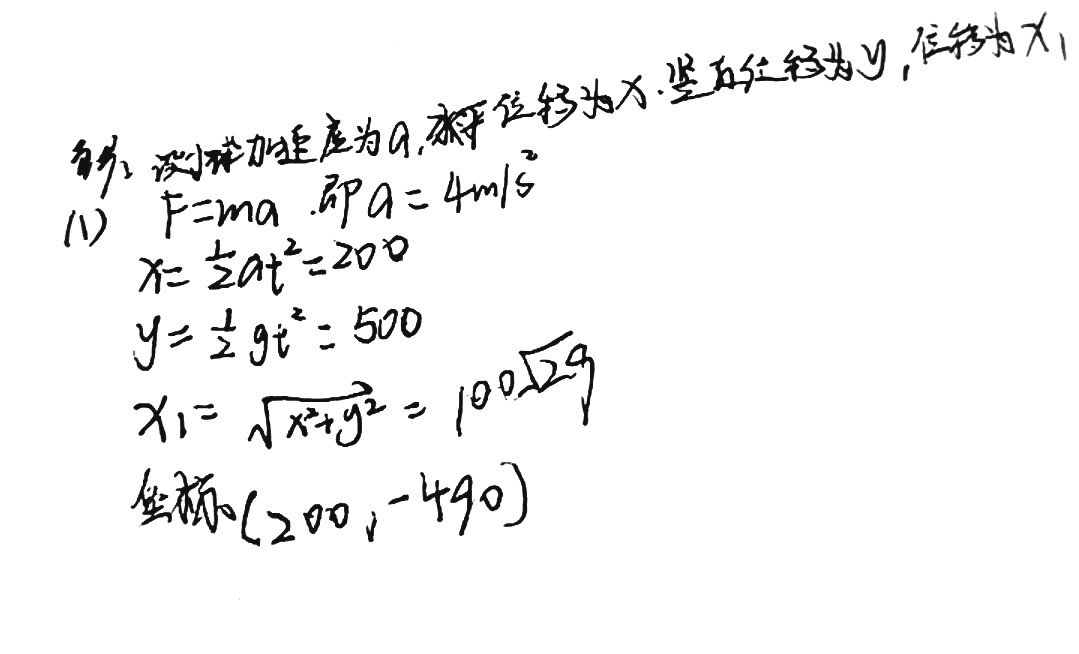 解：设小球加速度为a,水平位移为x.竖直位移为y,位移为x₁
(1) F=ma .即a=4m/s²
x=½at²=200
y=½gt²=500
x₁=√(x²+y²)=100√29
坐标(200,-490)